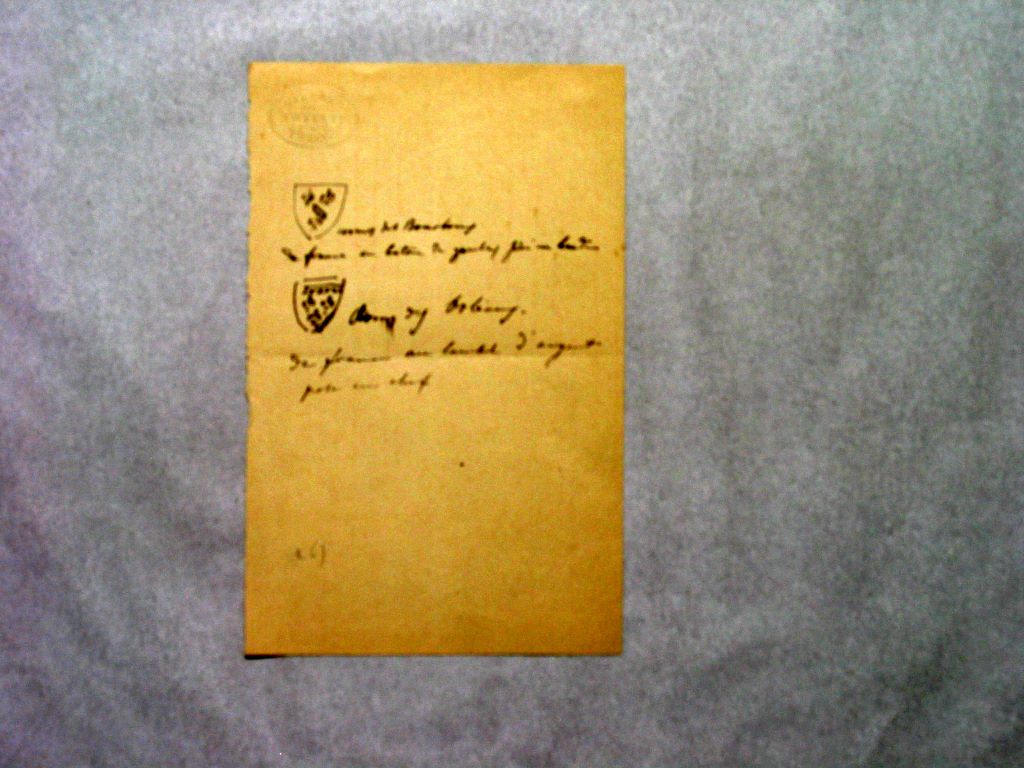 armes des Bourbons
de france au baton de gueules péri en bande
Armes des Orléans.
de france au lambel d'argent
posé en chef